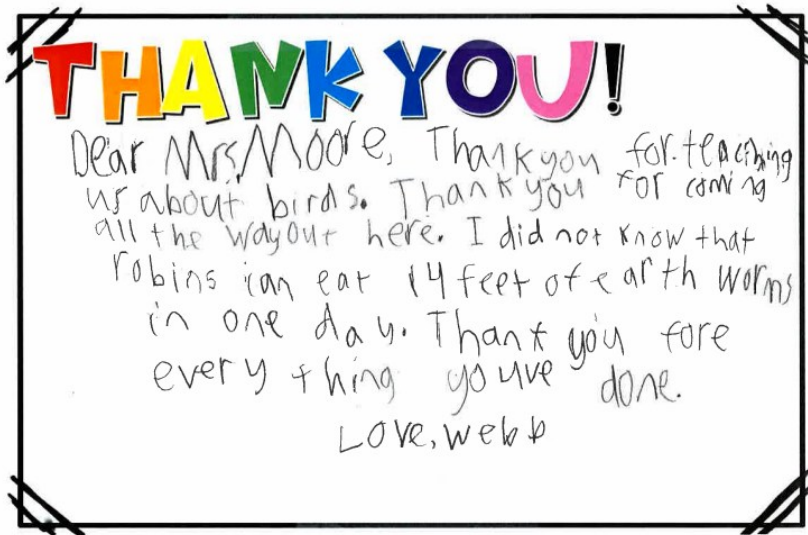 THANK YOU!
Dear Mrs. Moore, Thank you for teaching
us about birds. Thank you for coming
all the way out here. I did not know that
robins can eat 14 feet of earth worms
in one day. Thank you fore
every thing youve done.
Love, Webb